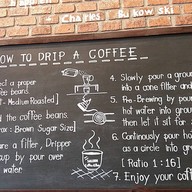 + Charles Bukowski
OW TO DRIP A COFFEE
ect a proper
ffee beans.
T - Medium Roasted ]
the coffee beans.
ax : Brown Sugar Size]
are a filter, Dripper
up by pour over
t water.
4. Slowly pour a groun
into a cone filter and
5. Pre-Brewing by pour
hot water into groun
then let it sit for
6. Continously pour ho
as a circle into gro
[ Ratio 1:16 ]
7. Enjoy your coff